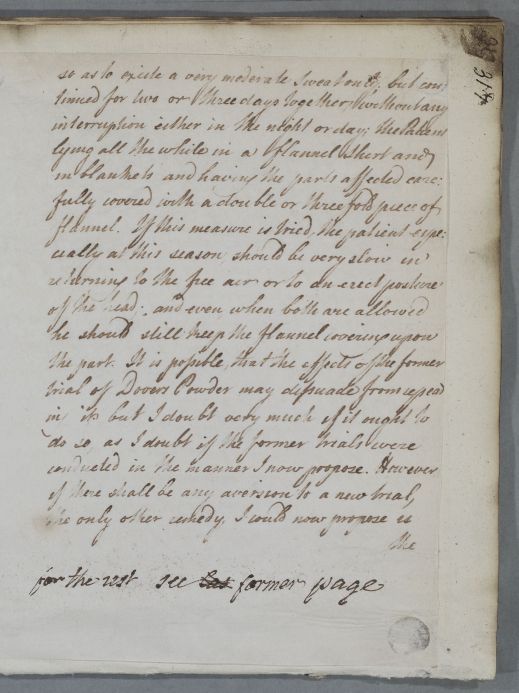 so as to excite a very moderate Sweat only; but con:
tinued for two or three days together, without any
interruption either in the night or day; the Patient
lying all the while in a flannel Shert and
in blankets and having the parts affected care:
fully covered with a double or three fold piece of
flannel. If this measure is tried, the patient espe:
cially at this season should be very slow in
returning to the free air or to an erect posture
of the head; and even when both are allowed
he should still keep the flannel covering upon
the part. It is possible, that the effects of the former
trial of Dovers Powder may dissuade from repeat
ing it but I doubt very much if it ought to
do so, as I doubt if the former trials were
conducted in the manner I now propose. However
if there shall be any aversion to a new trial,
the only other remedy, I could now propose is
the
for the rest see former page